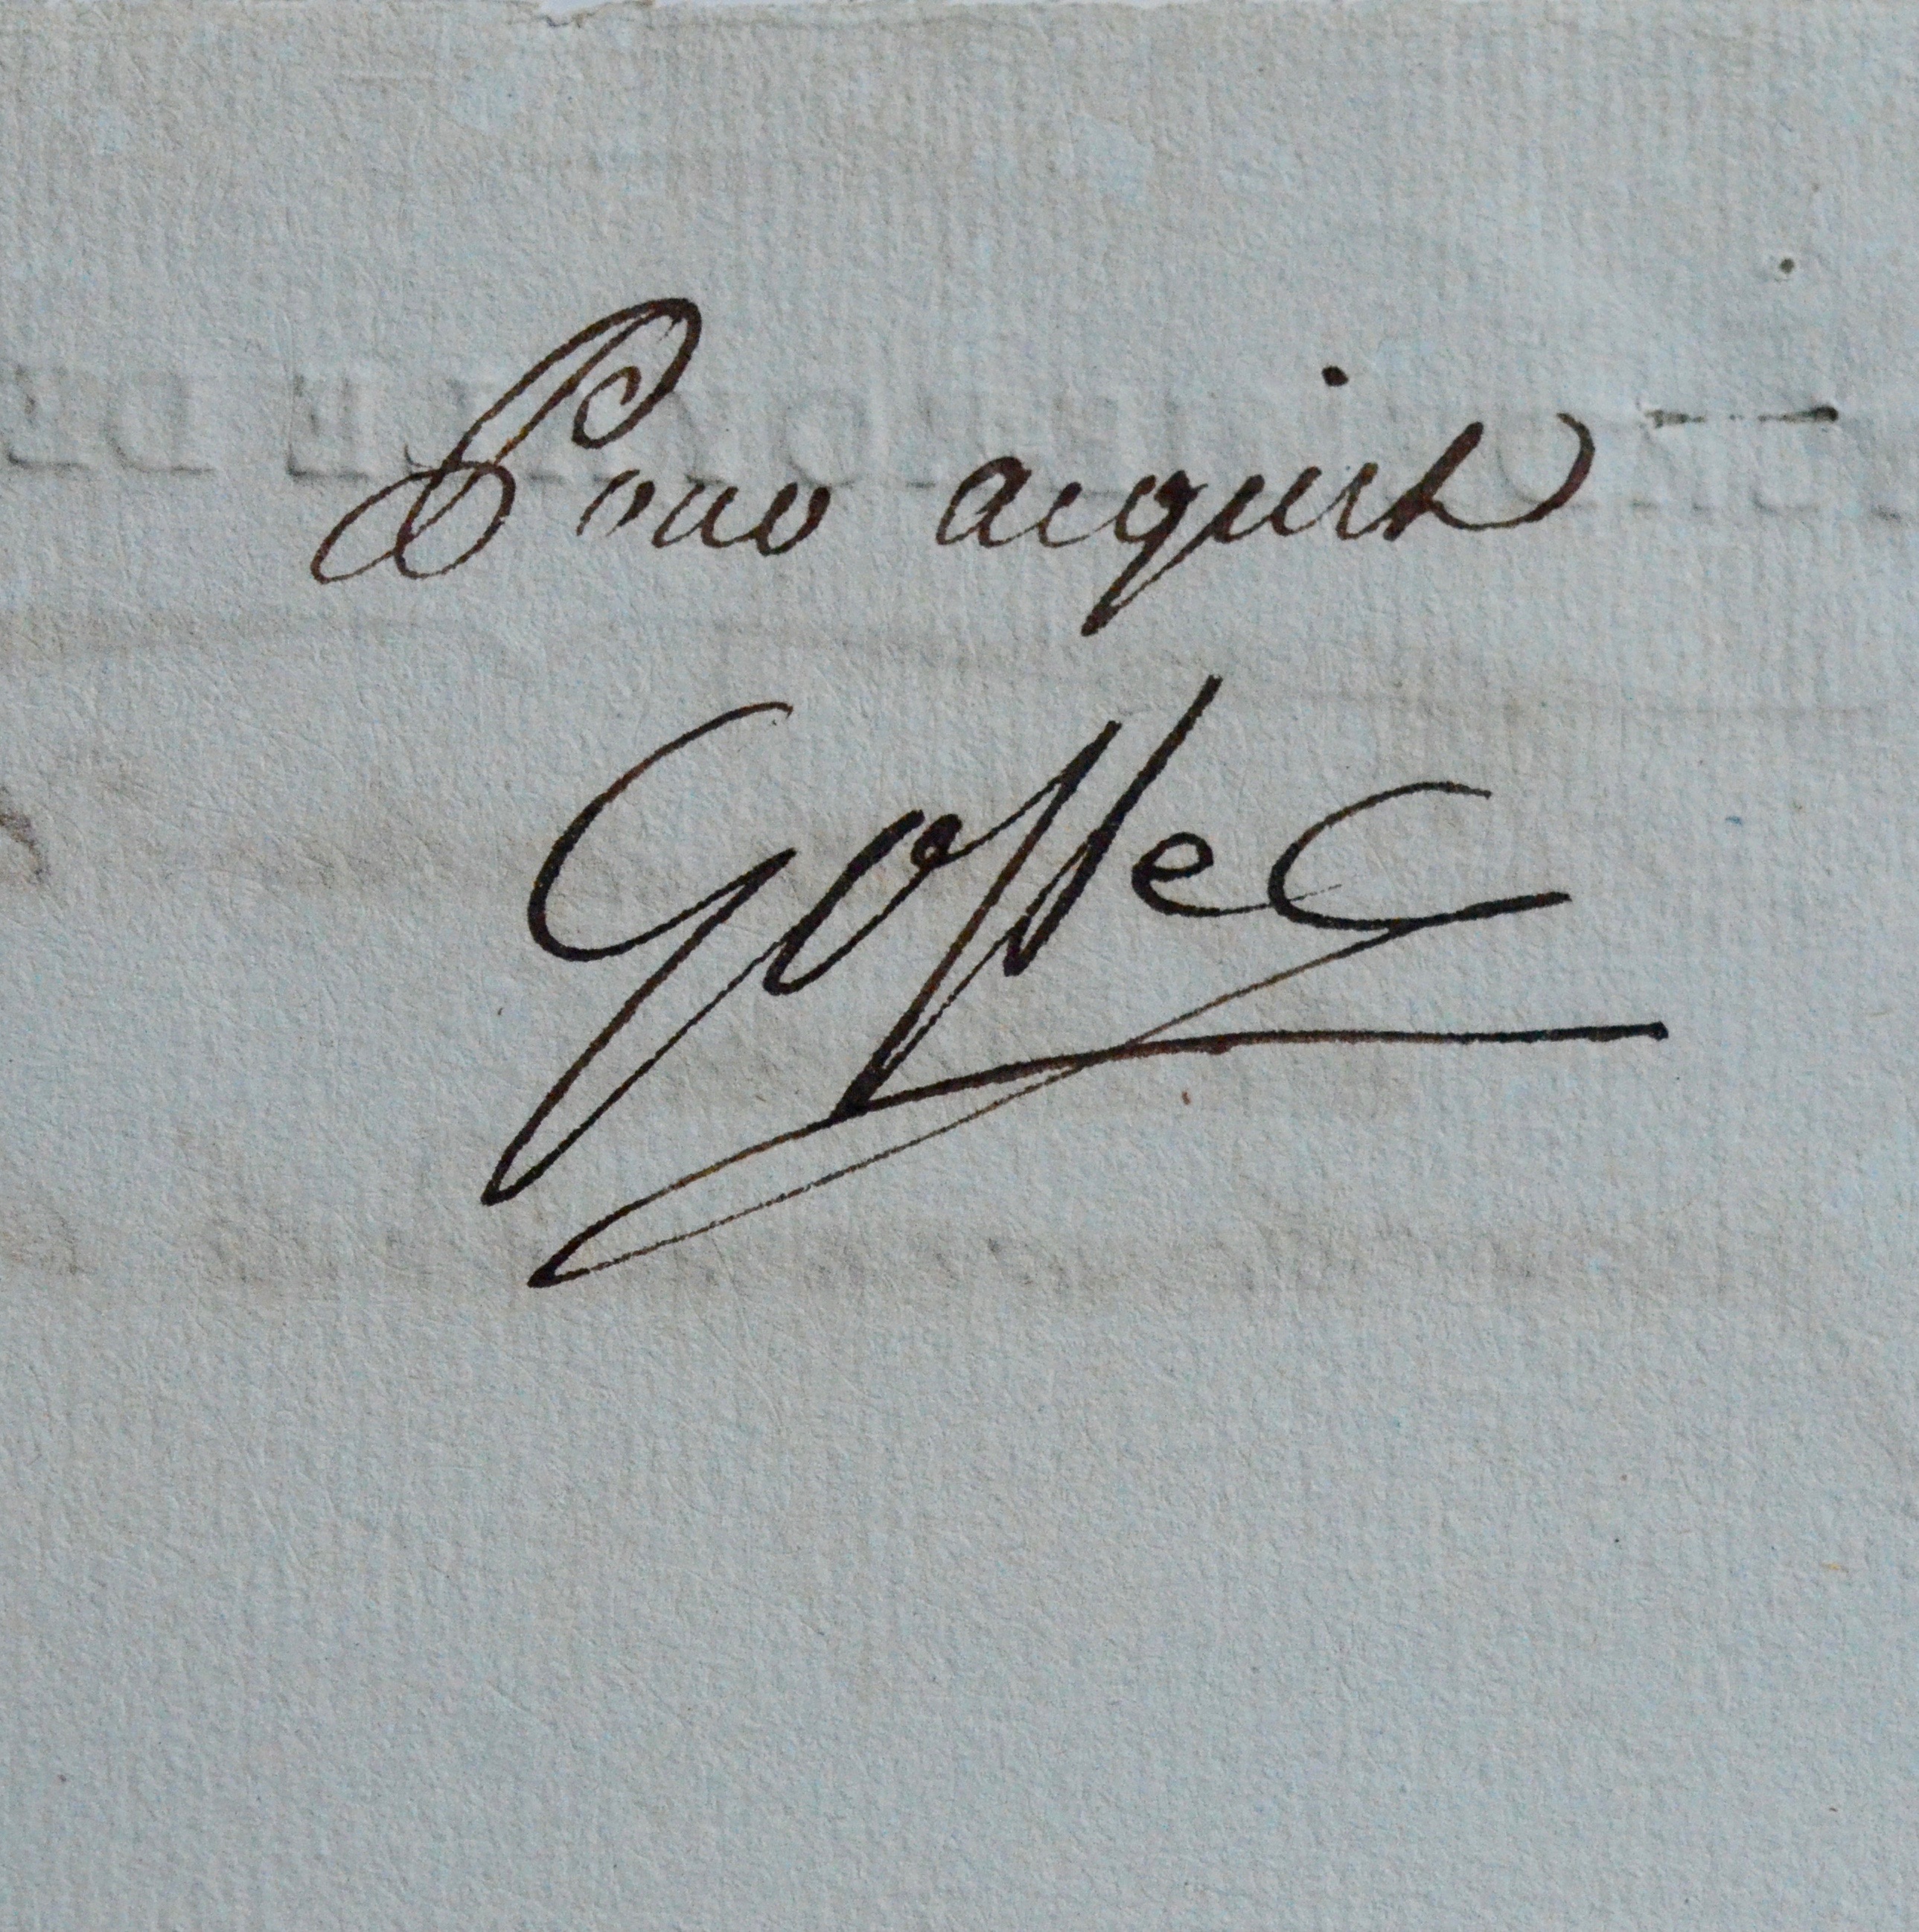 Pour acquit
Gossec